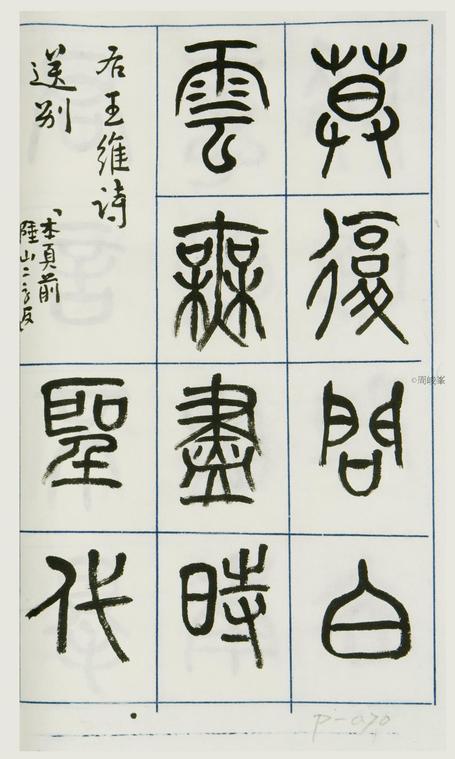 莫復問白
雲無盡時
右王維詩
送別
「本頁前
陸山二字反」
聖代
©周峻峯
p-070